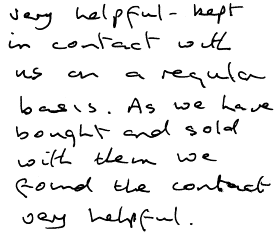 very helpful - kept
in contact with
us on a regular
basis. As we have
bought and sold
with them we
found the contact
very helpful.